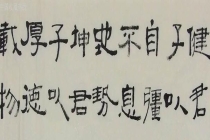 健君
子以
自彊
不息
地勢
坤君
子以
厚德
載物